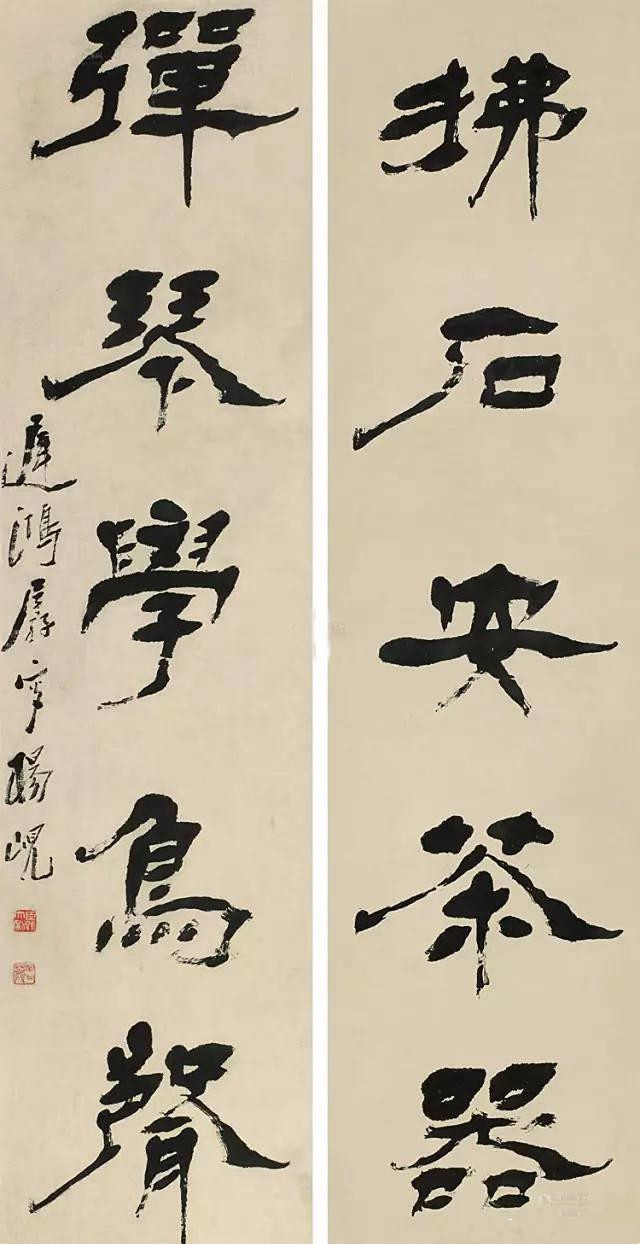 拂石安茶器
彈琴學鳥聲
遲鴻殘客楊峴